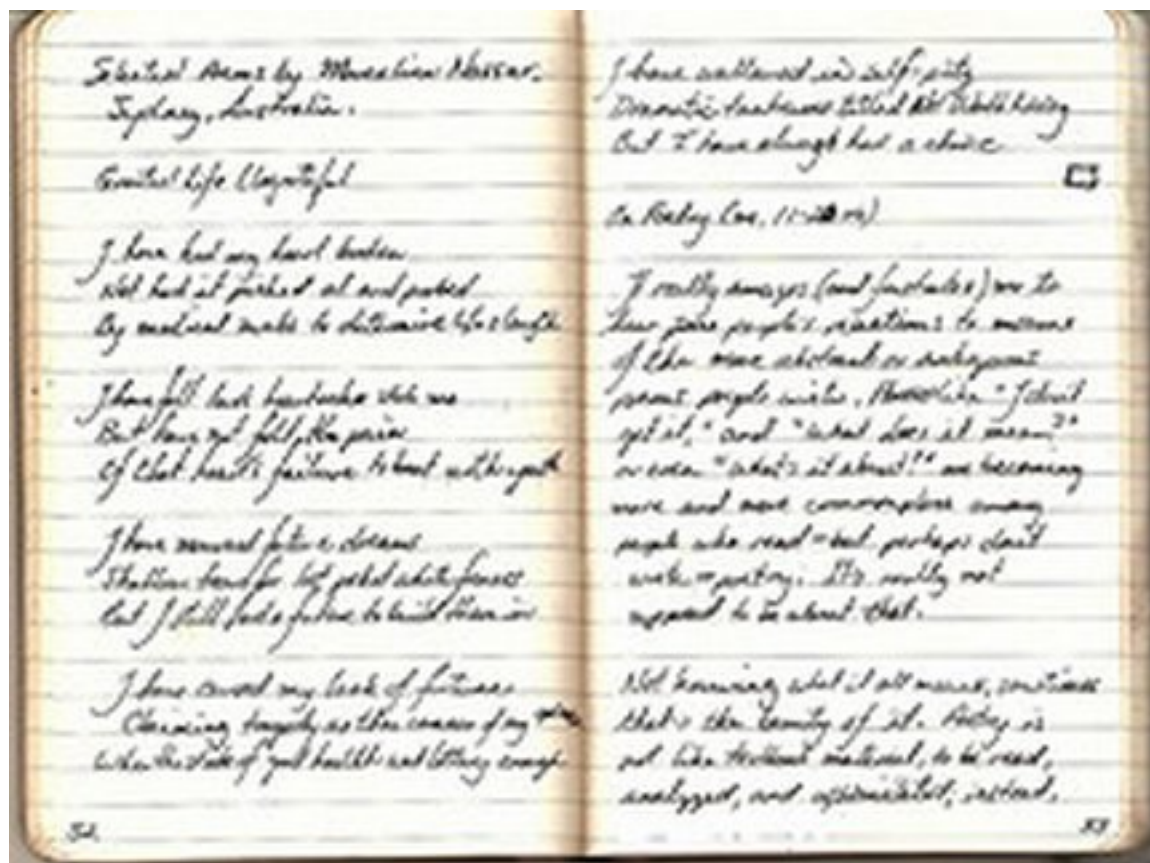 Selected Poems by Nassar.
Sydney, Australia.
Life Ungrateful
I have had my heart broken
Not had it pricked at and poked
By medical to determine life's length
I have felt heartache
But have not felt the pain
Of that heart's failure to beat
I have future dreams
for lost picket white fences
But I still had a future to build them in
I have cursed my lack of fortune
Claiming tragedy as the of my
When the state of your health was enough
52
I have wallowed in self-pity
Dramatic titled Not Worth Living
But I have always had a choice
On Poetry
It really amazes (and frustrates) me to
hear some people's reactions to
of the more abstract or
poems people write. like "I don't
get it," and "what does it mean?"
or even "what's it about?" are becoming
more and more commonplace among
people who read - but perhaps don't
write - poetry. It's really not
supposed to be about that.
Not knowing what it all means, sometimes
that's the beauty of it. Poetry is
not like textbook material, to be read,
analyzed, and; instead,
53